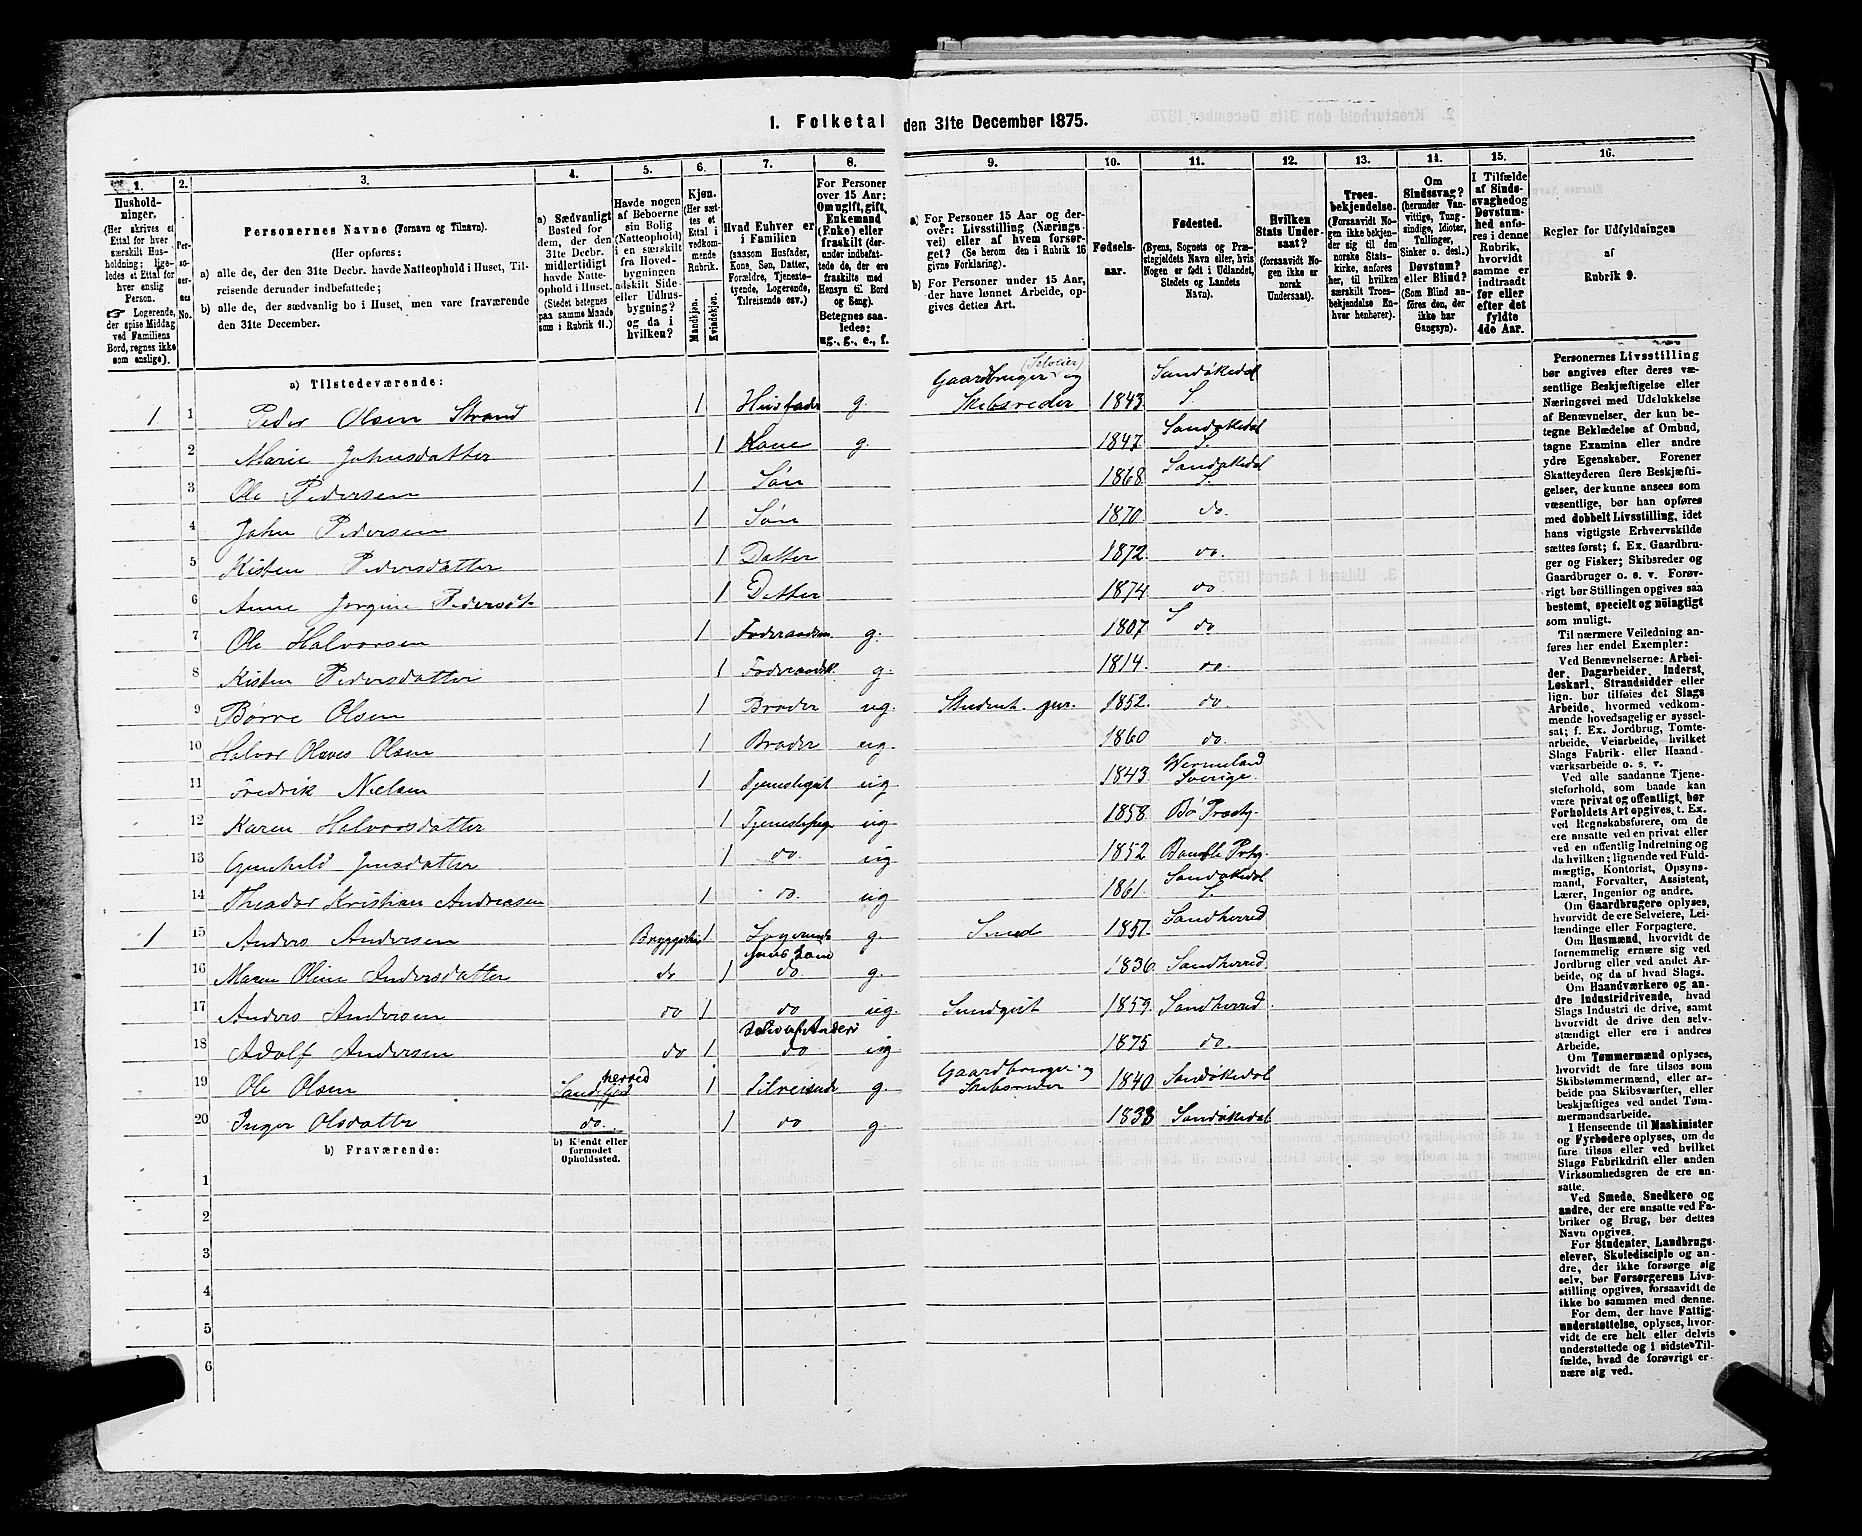 1. Folketal den 31te December 1875.
1. 2. 3. 4. 5. 6. 7. 8. 9. 10. 11. 12. 13. 14. 15. 16.
Husholdninger.
(Her skrives et
Ettal for hver
særskilt Husholdning;
ligeledes et Ettal for
hver enslig
Person.
Logerende,
der spise Middag
ved Familiens
Bord, regnes ikke
som enslige).
Personernes No.
Personernes Navne (Fornavn og Tilnavn).
(Her opføres:
a) alle de, der den 31te Decbr. havde Natteophold i Huset, Tilreisende derunder indbefattede;
b) alle de, der sædvanlig bo i Huset, men vare fraværende
den 31te December.
a) Sædvanligt
Bosted for
dem, der den
31te Decbr.
midlertidigt
havde Natteophold i Huset.
(Stedet betegnes
paa samme Maade
som i Rubrik 11.)
Havde nogen
af Beboerne
sin Bolig
(Natteophold)
i en særskilt
fra Hovedbygningen
adskilt Side-
eller Udhusbygning?
og da i
hvilken?
Kjøn.
(Her sættes et
Ettal i
vedkommende
Rubrik.
Mandkjøn.
Kvindekjøn.
Hvad Enhver er
i Familien
(saasom Husfader,
Kone, Søn, Datter,
Forældre, Tjenestetyende, Logerende,
Tilreisende osv.)
For Personer
over 15 Aar:
Om ugift, gift,
Enkemand
(Enke) eller
fraskilt (derunder indbefattede de, der ere
fraskilte med
Hensyn til Bord
og Seng).
Betegnes saaledes:
ug., g., e., f.
a) For Personer 15 Aar og derover: Livsstilling (Næringsvei) eller af hvem forsørget? (Se herom den i Rubrik 16
givne Forklaring).
b) For Personer under 15 Aar,
der have lønnet Arbeide, opgives dettes Art.
Fødselsaar.
Fødested.
(Byens, Sognets og Præstegjeldets Navn eller, hvis
Nogen er født i Udlandet,
Stedets og Landets
Navn).
Hvilken
Stats Undersaat?
(forsaavidt Nogen ikke er
norsk
Undersaat).
Troesbekjendelse.
(Forsaavidt Nogen ikke bekjender sig til den
norske Statskirke, anføres
her, til hvilken
særskilt Troesbekjendelse Enhver henhører).
Om
Sindssvag?
(herunder Vanvittige, Tungsindige, Idioter,
Tullinger,
Sinker o. desl.)
Døvstum?
eller Blind?
(Som Blind anføres den, der
ikke har
Gangsyn).
I Tilfælde
af Sindssvaghed og
Døvstumhed anføres i denne
Rubrik,
hvorvidt
samme er
indtraadt
før eller
efter det
fyldte
4de Aar.
Regler for Udfyldningen
af
Rubrik 9.
a) Tilstedeværende:
1 1 Peder Olsen Strand 1 Husfader g. Gaardbruger (Selveier) og Skibsreder 1843 Sandøkedal S.
2 Marie Johnsdatter 1 Kone g. 1847. Sandøkedal S.
3 Ole Pedersen 1 Søn 1868. Sandøkedal S.
4 John Pedersen 1 Søn 1870. do.
5 Kisten Pedersdatter 1 Datter 1872. do.
6 Anne Jorgine Pedersdt. 1 Datter 1874. do
7 Ole Halvorsen 1 Føderaadsm g. 1807. S do
8 Kisten Pedersdatter 1 Føderaadsk. g. 1814. do
9 Børre Olsen 1 Broder ug. Student. jur. 1852. do
10 Halvor Olaves Olsen 1 Broder ug. 1860 do.
11 Fredrik Nielsen 1 Tjenestegut ug 1843. Wermeland Sverige.
12 Karen Halvorsdatter 1 Tjenestepige ug 1858. Bø Præstg.
13 Gunhild Jensdatter 1 do. ug 1852 Bamble Prtg.
14 Theodor Kristian Andreasen 1 do. ug 1861. Sandøkedal S.
1 15 Anders Andersen Bryggerhus 1 Logerende g. Smed 1851. Sandherred
16 Maren Oline Andersdatter do 1 hans Kone do g. 1836. Sandherred.
17 Anders Andersen do 1 do ug. Smedgut 1859. Sandherred.
18 Adolf Andersen do 1 do ug 1875 do.
19 Ole Olsen Sandherred 1 Tilreisende g. Gaardbruger og Skibsreder 1840. Sandøkedal
20 Inger Olsdatter do. 1 do g. 1838 Sandøkedal
b) Fraværende:
b) Kjendt eller
formodet
Opholdssted.
1
2
3
4
5
6
Personernes Livsstilling
bør angives efter deres væsentlige Beskjæftigelse eller
Næringsvei med Udelukkelse
af Benævnelser, der kun betegne Beklædelse af Ombud,
tagne Examina eller andre
ydre Egenskaber. Forener
Skatteyderen flere Beskjæftigelser, der kunne ansees som
væsentlige, bør han opføres
med dobbelt Livsstilling, idet
hans vigtigste Erhvervskilde
sættes først; f. Ex. Gaardbruger og Fisker; Skibsreder og
Gaardbruger o. s. v. Forøvrigt bør Stillingen opgives saa
bestemt, specielt og nøiagtigt
som muligt.
Til nærmere Veiledning anføres her endel Exempler:
Ved Benævnelserne: Arbeider, Dagarbeider, Inderst,
Løskarl, Strandsidder eller
lign. bør tilføies det Slags
Arbeide, hvormed vedkommende hovedsagelig er sysselsat; f. Ex. Jordbrug, Tomtearbeide, Veiarbeide, hvilket
Slags Fabrik- eller Haandværksarbeide o. s. v.
Ved alle saadanne Tjenesteforhold, som baade kan
være privat og offentligt, bør
Forholdets Art opgives, t. Ex.
ved Regnskabsførere, om de
ere ansatte ved en privat eller
ved en offentlig Indretning og
da hvilken; lignende ved Fuldmægtig, Kontorist, Opsynsmand, Forvalter, Assistent,
Lærer, Ingeniør og andre.
Om Gaardbrugere oplyses,
hvorvidt de ere Selveiere, Leilændinge eller Forpagtere.
Om Husmænd, hvorvidt de
fornemmelig ernære sig ved
Jordbrug eller ved andet Arbeide, og da af hvad Slags.
Om Haandværkere og andre Industridrivende, hvad
Slags Industri de drive, samt
hvorvidt de drive den selvstændigt eller ere i andres
Arbeide.
Om Tømmermænd oplyses,
hvorvidt de fare tilsøs som
Skibstømmermænd, eller arbeide paa Skibsværfter, eller
beskjæftiges ved andet Tømmermandsarbeide.
I Henseende til Maskinister
og Fyrbødere oplyses, om de
fare tilsøs eller ved hvilket
Slags Fabrikdrift eller anden
Virksomhedsgren de ere ansatte.
Ved Smede, Snedkere og
andre, der ere ansatte ved Fabriker og Brug, bør dettes
Navn opgives.
For Studenter, Landbrugselever, Skoledisciple og andre, der ikke forsørge sig
selv, bør Forsørgerens Livsstilling opgives, forsaavidt de
ikke bo sammen med denne.
For dem, der have Fattigunderstøttelse, oplyses, hvorvidt de ere helt eller delvis
understøttede og i sidste Tilfælde, hvad de forøvrigt ernære sig ved.